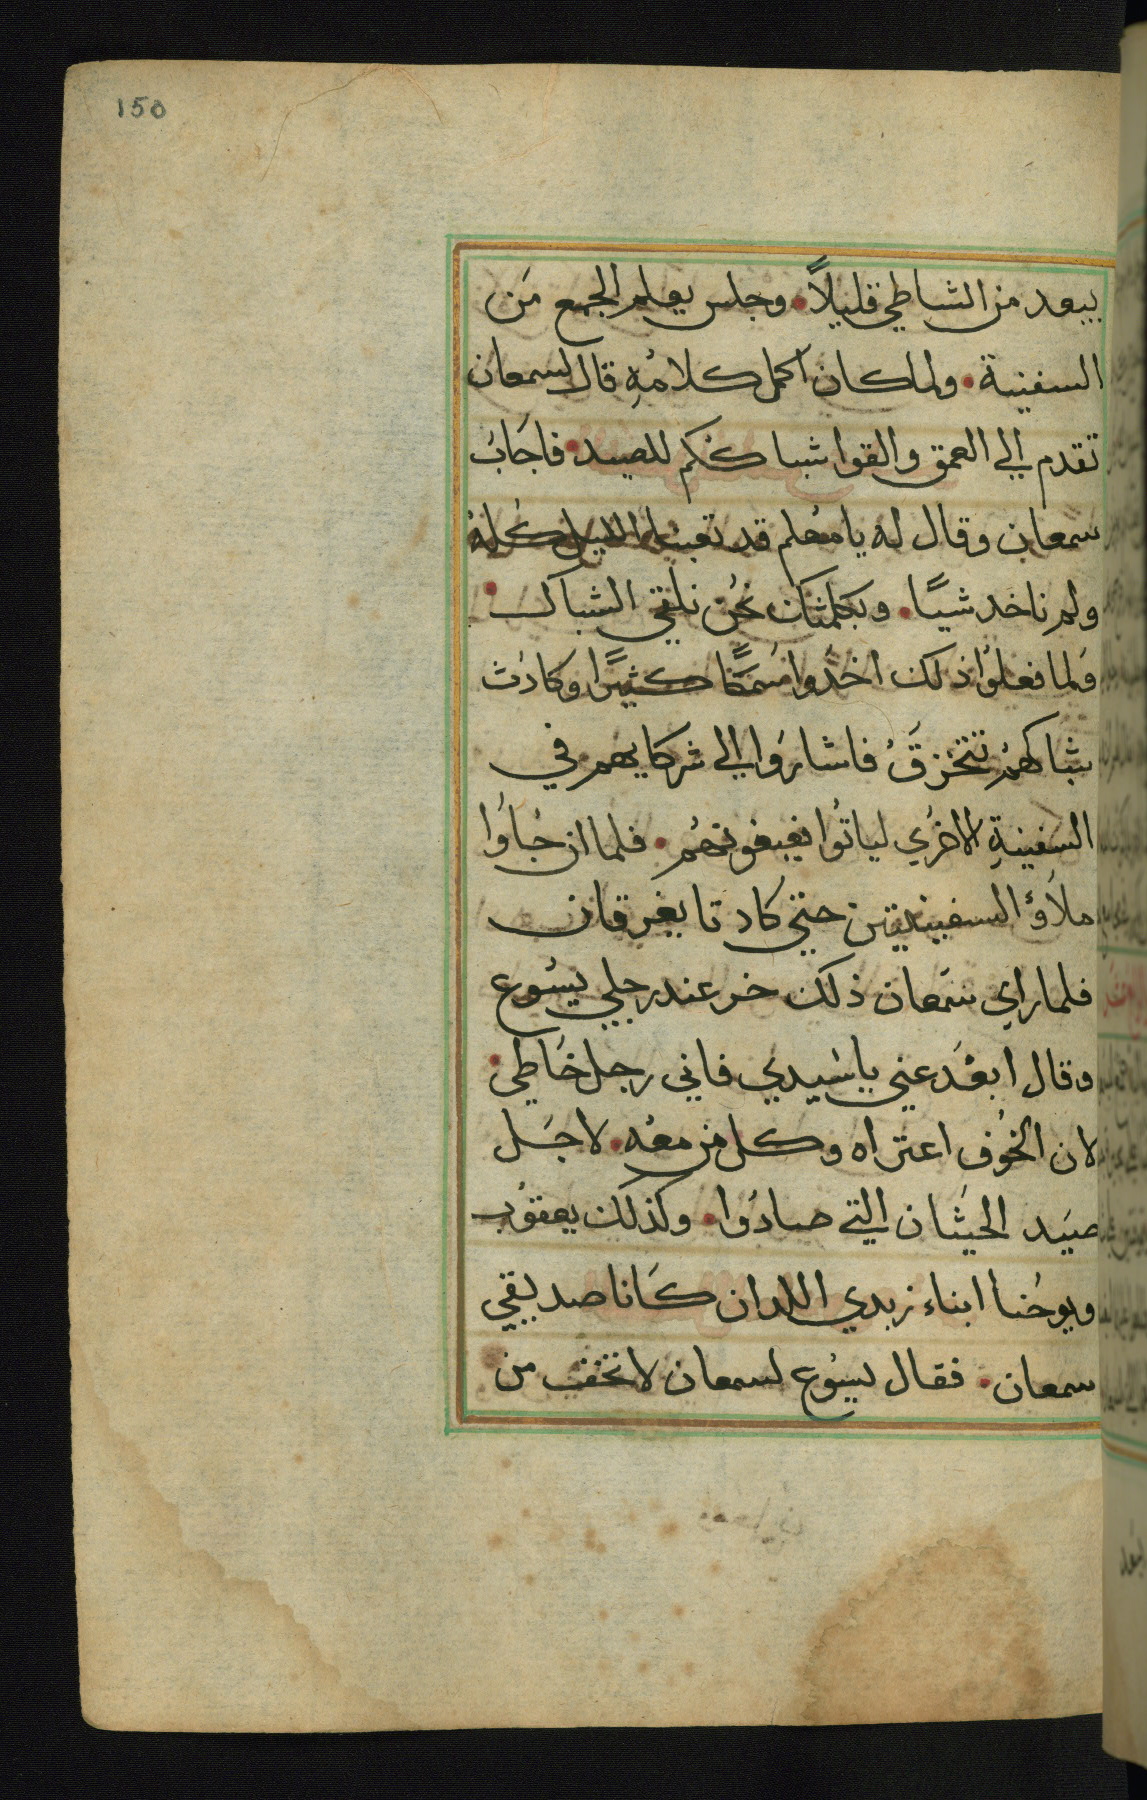 150
يبعد من الشاطي قليلاً. وجلس يعلم الجمع من
السفينة. ولما كان اكمل كلامه قال لسمعان
تقدم الي العمق والقوا شباككم للصيد. فاجاب
سمعان وقال له يا معلم قد تعبنا الليل كله
ولم ناخد شيًا. وبكلمتك نحن نلقي الشباك.
ولما فعلوا ذلك اخدوا سمكًا كثيرًا وكادت
شباكهم تتخزق فاشاروا الي شركايهم في
السفينة الاخري لياتوا يعينونهم. فلما ان جاوا
ملاؤ السفينتين حتي كادتا يغرقان
فلما راي سمعان ذلك خر عند رجلي يسوع
وقال ابعد عني يا سيدي فاني رجل خاطي.
لان الخوف اعتراه وكل من معه. لاجل
صيد الحيتان التي صادوا. وكذلك يعقوب
ويوحنا ابناء زبدي اللدان كانا صديقي
سمعان. فقال يسوع لسمعان لا تخف من